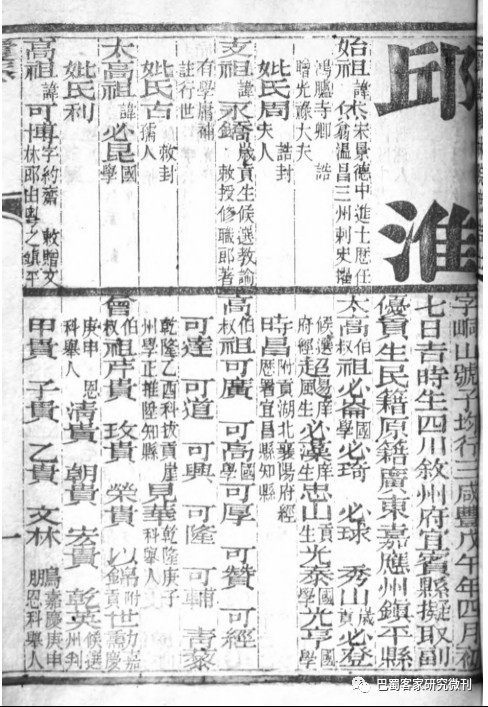 邱淮
字峒山號子均行三咸豐戊午年四月初
七日吉時生四川敘州府宜賓縣擬取副
優貢生民籍原籍廣東嘉應州鎮平縣
始祖諱 宋景德中進士歷任
溫昌三州刺史擢
鴻臚寺卿 誥
贈光祿大夫
妣氏周 誥封
夫人
支祖諱永鎬 歲貢生候選教諭
敕授修職郎著
有學庸補
註行世
妣氏古 敕封
孺人
太高祖諱必昆 國
學
妣氏利
高祖諱可博 字約齋 敕贈文
林郎由粵之鎮平
太高伯叔祖必崙 國
學 必琦 必球 秀山 歲
貢 必登
候選
府經 超 必藻 忠山 光泰 國
學 光亨 國
學
時昌 附貢湖北襄陽府經
歷署宜昌縣知縣
高伯叔祖可廣 可高 國
學 可厚 可贊 可經
可達 可道 可興 可隆 可輔 青藜
乾隆乙酉科拔貢崖
州學正推陞知縣 見華 乾隆庚子
科舉人
曾伯叔祖芹貴 玫貴 榮貴
庚申 恩
科舉人 清貴 朝貴 宏貴 乾英 候選
州判
甲貴 子貴 乙貴 文林 鵬 嘉慶庚申
恩科舉人
一
巴蜀客家研究微刊